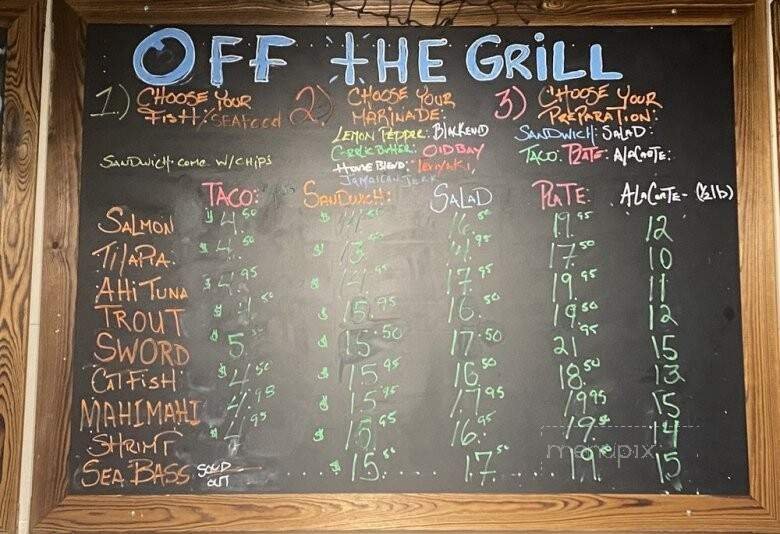 OFF THE GRILL
1) CHOOSE YOUR FISH/SEAFOOD
SANDWICH COME W/CHIPS
2) CHOOSE YOUR MARINADE:
LEMON PEPPER: BLACKEND
GARLIC BUTTER: OLD BAY
HOUSE BLEND: TERIYAKI,
JAMAICAN JERK
3) CHOOSE YOUR PREPARATION:
SANDWICH: SALAD:
TACO: PLATE: ALACARTE:
TACO: SANDWICH: SALAD PLATE: ALACARTE- (½lb)
SALMON $4.50 $ 16.50 19.95 12
TILAPIA $4.50 $ 17.50 10
AHI TUNA $4.95 $ 17.95 19.95 11
TROUT $ .50 $15.95 16.50 19.50 12
SWORD $5 $15.50 17.50 21.95 15
CATFISH $4.50 $15.95 16.50 18.50 13
MAHIMAHI 4.95 $15.95 17.95 19.95 15
SHRIMP $15.95 16.95 14
SEA BASS SOLD OUT $15.50 17.50 15
menupix